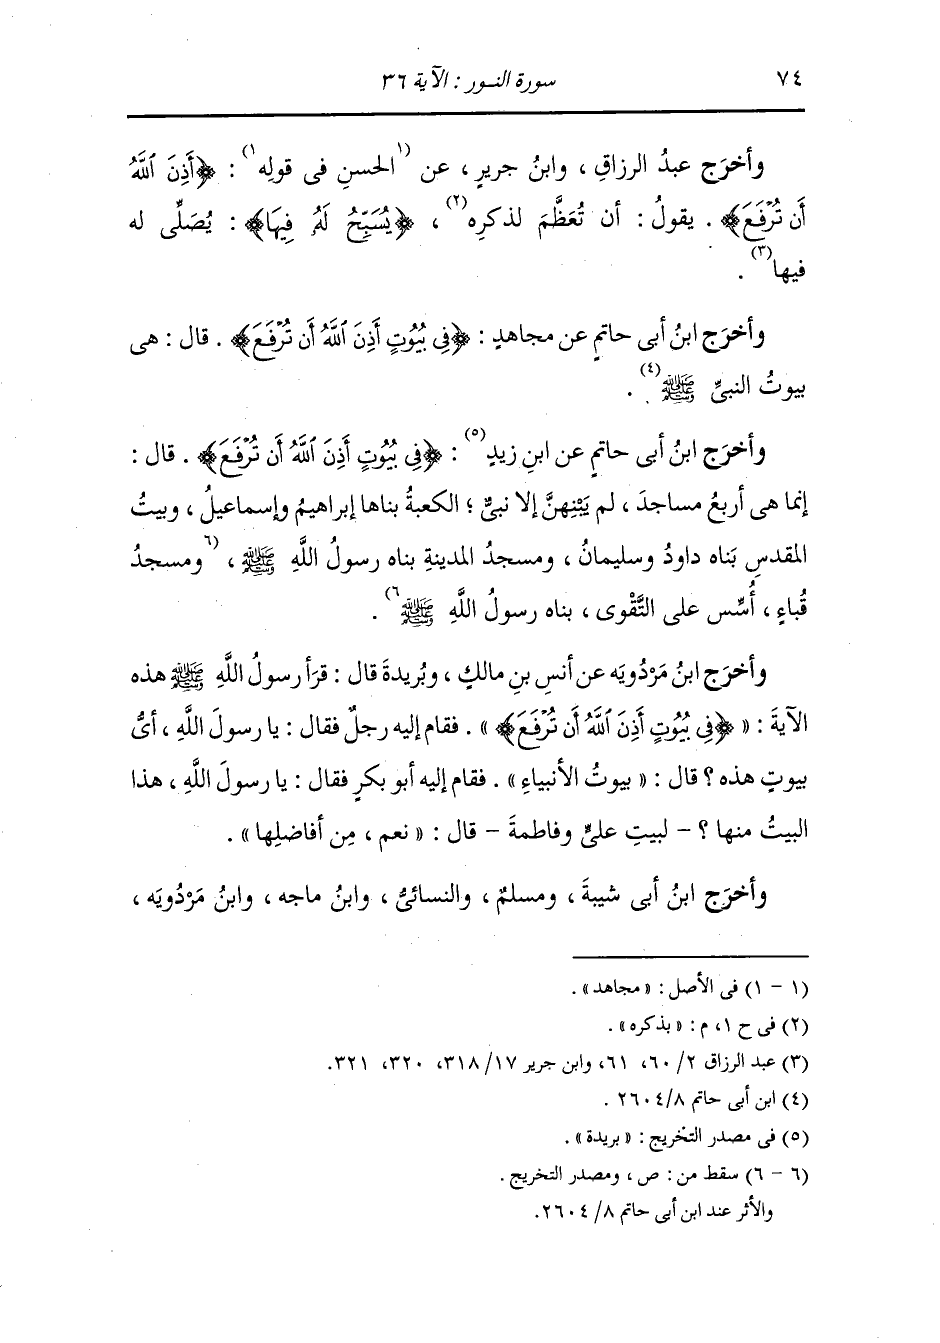 ٧٤ سورة النور : الآية ٣٦
وأخرَج عبدُ الرزاقِ ، وابنُ جريرٍ ، عن (١الحسنِ فى قولِه١) : ﴿أَذِنَ ٱللَّهُ
أَن تُرۡفَعَ﴾ . يقولُ : أن تُعَظَّمَ لذكرِه(٢) ، ﴿يُسَبِّحُ لَهُۥ فِيهَا﴾ : يُصَلِّى له
فيها(٣) .
وأخرَج ابنُ أبى حاتمٍ عن مجاهدٍ : ﴿فِى بُيُوتٍ أَذِنَ ٱللَّهُ أَن تُرۡفَعَ﴾ . قال : هى
بيوتُ النبىِّ ﷺ(٤) .
وأخرَج ابنُ أبى حاتمٍ عن ابنِ زيدٍ(٥) : ﴿فِى بُيُوتٍ أَذِنَ ٱللَّهُ أَن تُرۡفَعَ﴾ . قال :
إنما هى أربعُ مساجدَ ، لم يَبْنِهنَّ إلا نبىٌّ ؛ الكعبةُ بناها إبراهيمُ وإسماعيلُ ، وبيتُ
المقدسِ بَناه داودُ وسليمانُ ، ومسجدُ المدينةِ بناه رسولُ اللَّهِ ﷺ ، (٦ومسجدُ
قُباءٍ ، أُسِّس على التَّقْوى ، بناه رسولُ اللَّهِ ﷺ٦) .
وأخرَج ابنُ مَرْدُويَه عن أنسِ بنِ مالكٍ ، وبُريدةَ قال : قرَأ رسولُ اللَّهِ ﷺ هذه
الآيةَ : « ﴿فِى بُيُوتٍ أَذِنَ ٱللَّهُ أَن تُرۡفَعَ﴾ » . فقام إليه رجلٌ فقال : يا رسولَ اللَّهِ ، أىُّ
بيوتٍ هذه ؟ قال : « بيوتُ الأنبياءِ » . فقام إليه أبو بكرٍ فقال : يا رسولَ اللَّهِ ، هذا
البيتُ منها ؟ – لبيتِ علىٍّ وفاطمةَ – قال : « نعم ، مِن أفاضلِها » .
وأخرَج ابنُ أبى شيبةَ ، ومسلمٌ ، والنسائىُّ ، وابنُ ماجه ، وابنُ مَرْدُويَه ،
(١ – ١) فى الأصل : « مجاهد » .
(٢) فى ح ١، م : « بذكره » .
(٣) عبد الرزاق ٢/ ٦٠، ٦١، وابن جرير ١٧/ ٣١٨، ٣٢٠، ٣٢١.
(٤) ابن أبى حاتم ٨/ ٢٦٠٤ .
(٥) فى مصدر التخريج : « بريدة » .
(٦ – ٦) سقط من : ص ، ومصدر التخريج .
والأثر عند ابن أبى حاتم ٨/ ٢٦٠٤.